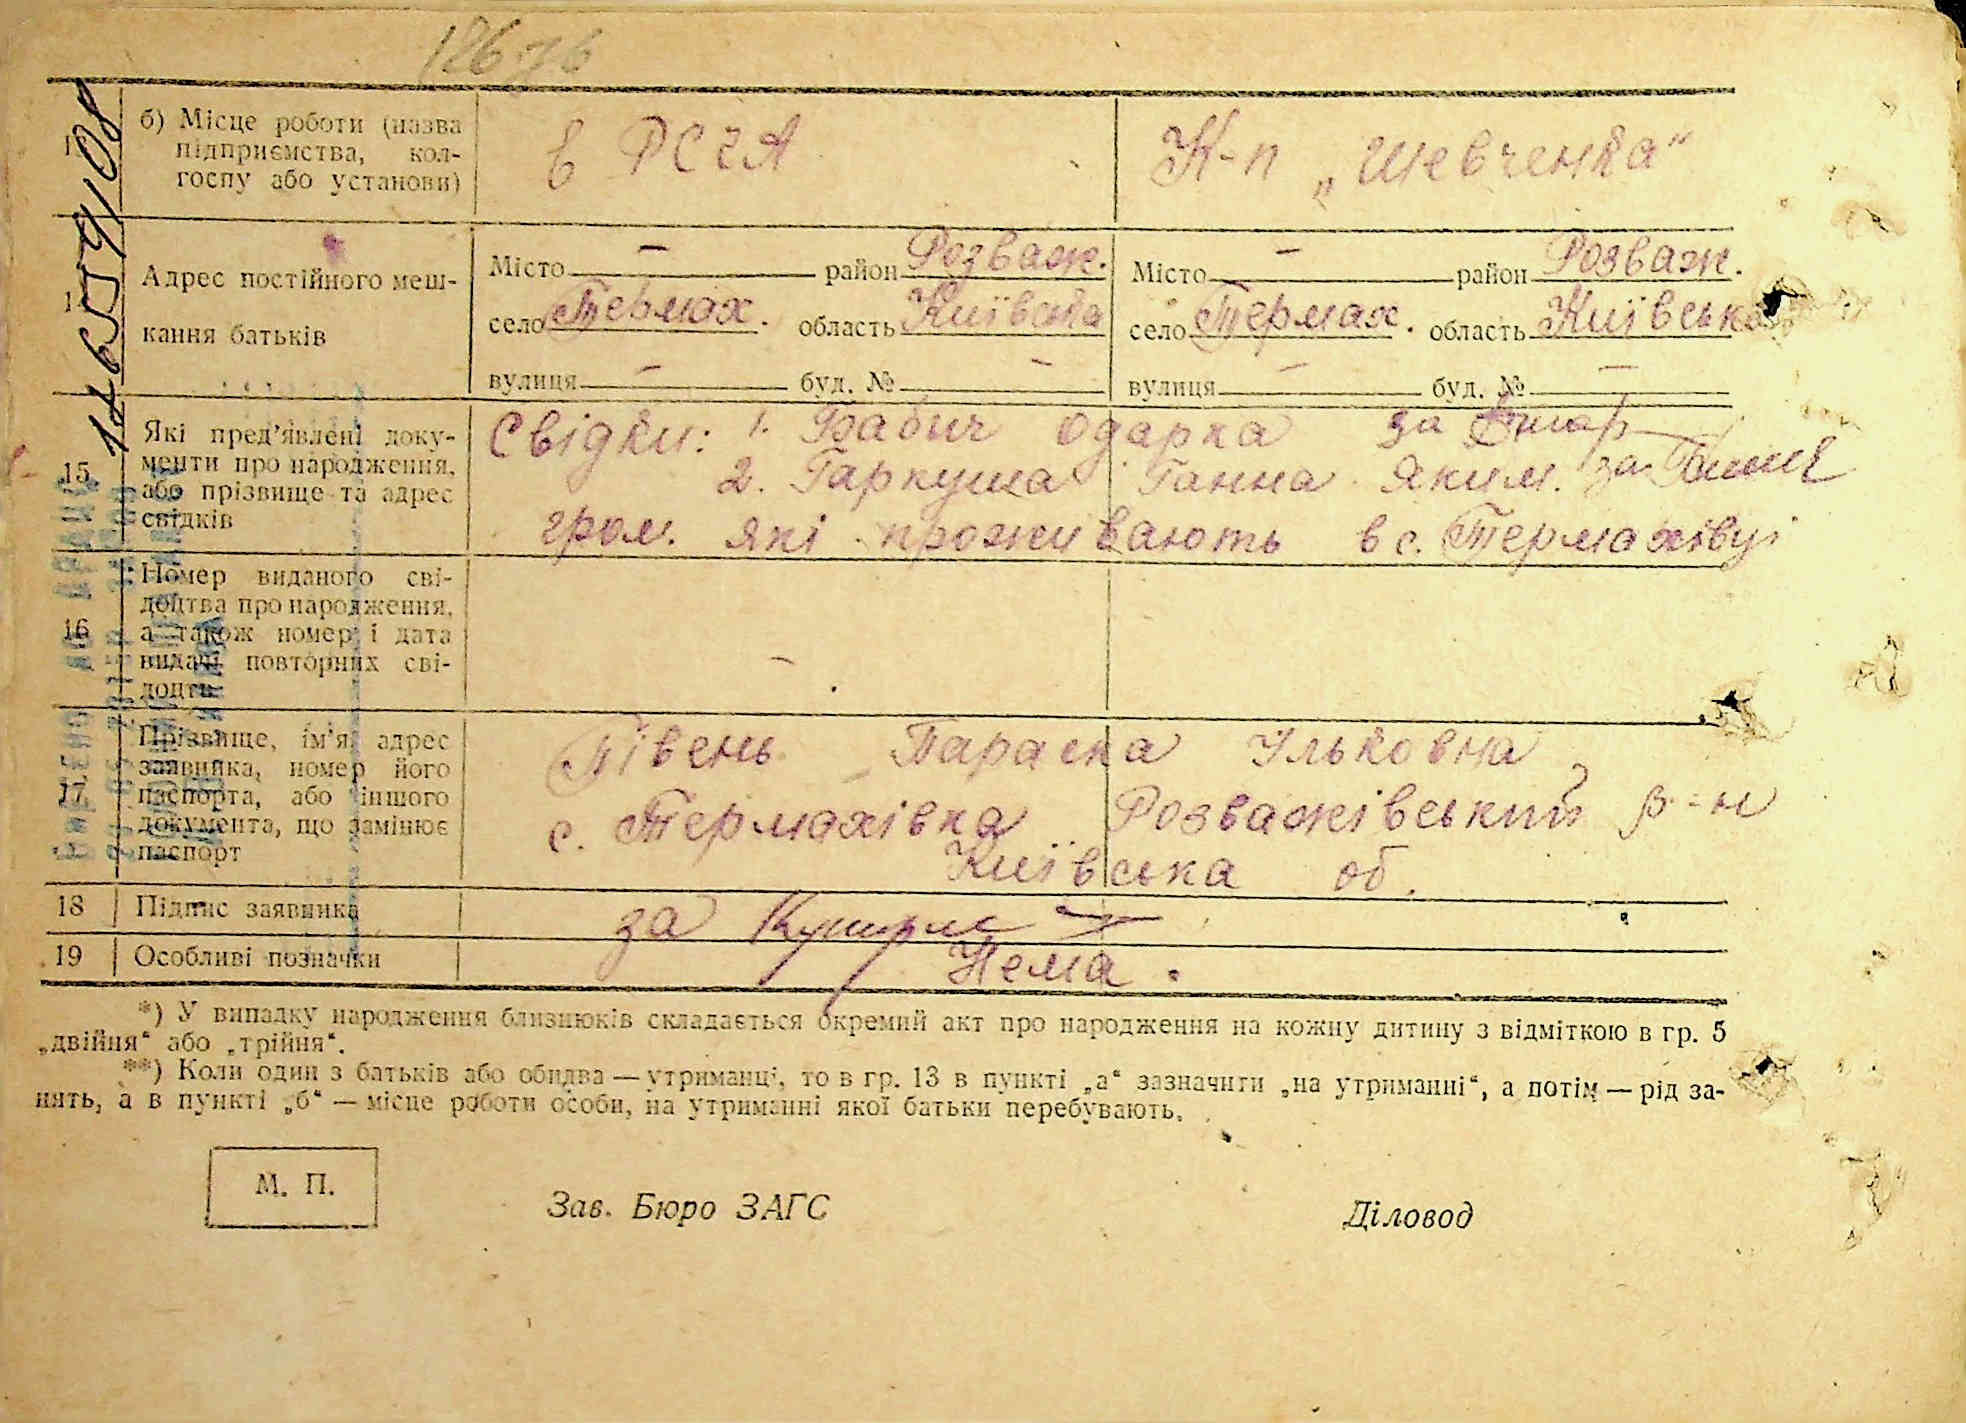 б) Місце роботи (назва
підприємства, кол-
госпу або установи)
в РСЧА
К-п „Шевченка“
Адрес постійного меш-
кання батьків
Місто — район Розваж.
село Термах. область Київська
вулиця — буд. № —
Місто — район Розваж.
село Термах. область Київська
вулиця — буд. № —
15
Які пред’явлені доку-
менти про народження,
або прізвище та адрес
свідків
Свідки: 1. Бабич Одарка за
2. Гаркуша Ганна Яким. за
гром. які проживають в с. Термахівці
16
Номер виданого сві-
доцтва про народження,
а також номер і дата
видачі повторних сві-
доцтв
—
17
Прізвище, ім’я, адрес
заявника, номер його
паспорта, або іншого
документа, що замінює
паспорт
Півень Параска Ульковна
с. Термахівка Розважівський р-н
Київська об.
18 Підпис заявника
за
19 Особливі позначки
Нема.
*) У випадку народження близнюків складається окремий акт про народження на кожну дитину з відміткою в гр. 5
„двійня“ або „трійня“.
**) Коли один з батьків або обидва — утриманці, то в гр. 13 в пункті „а“ зазначити „на утриманні“, а потім — рід за-
нять, а в пункті „б“ — місце роботи особи, на утриманні якої батьки перебувають.
М. П.
Зав. Бюро ЗАГС
Діловод